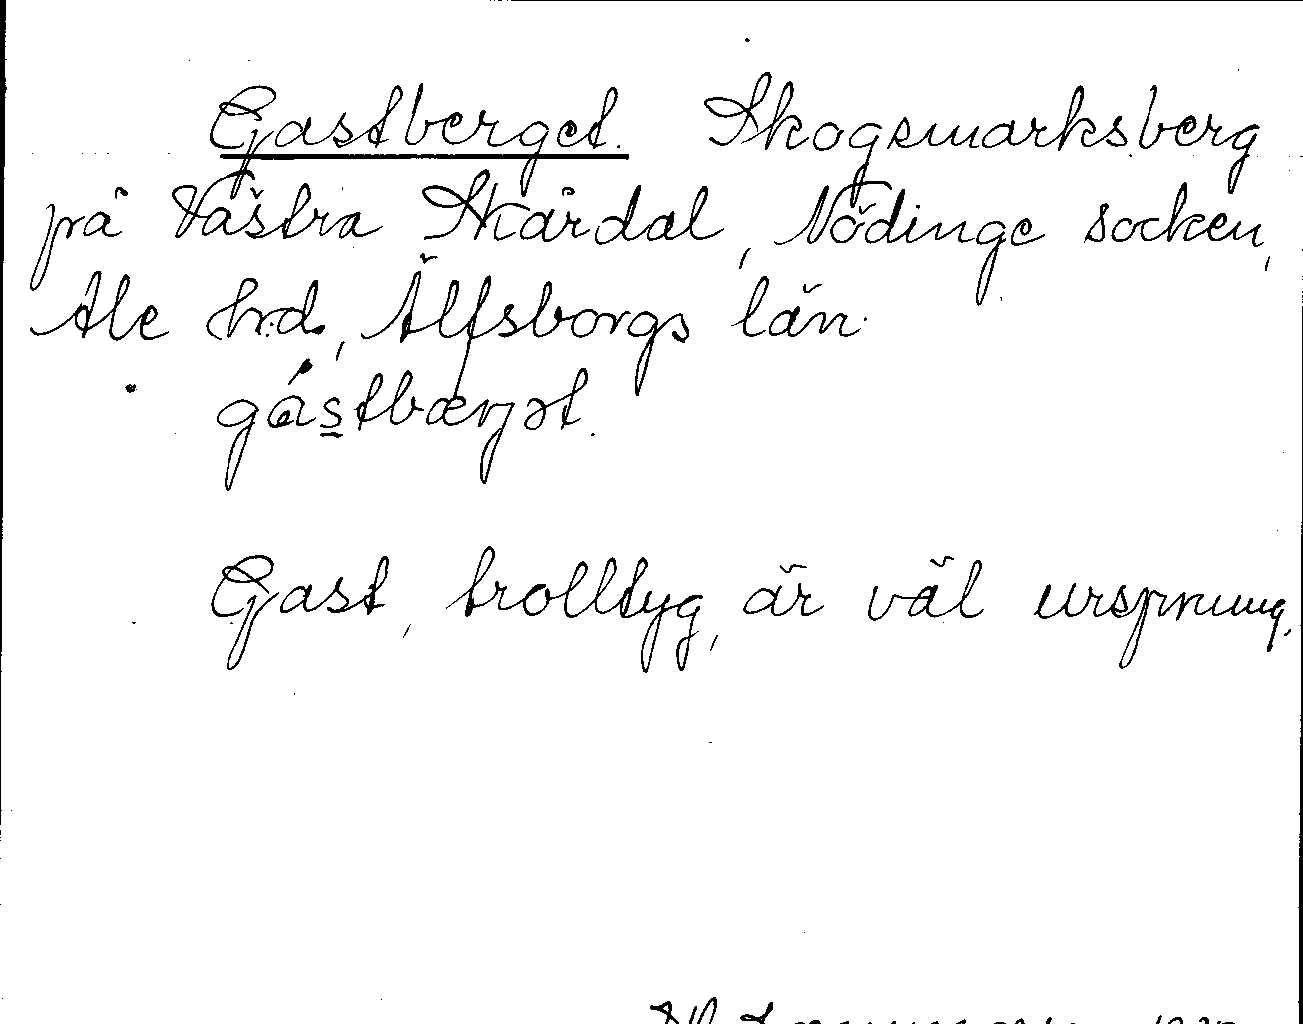 Gastberget. Skogsmarksberg
på Västra Skårdal, Nödinge socken,
Ale hd., Älfsborgs län.
gástbærjət.
Gast, trolltyg, är väl ursprung.